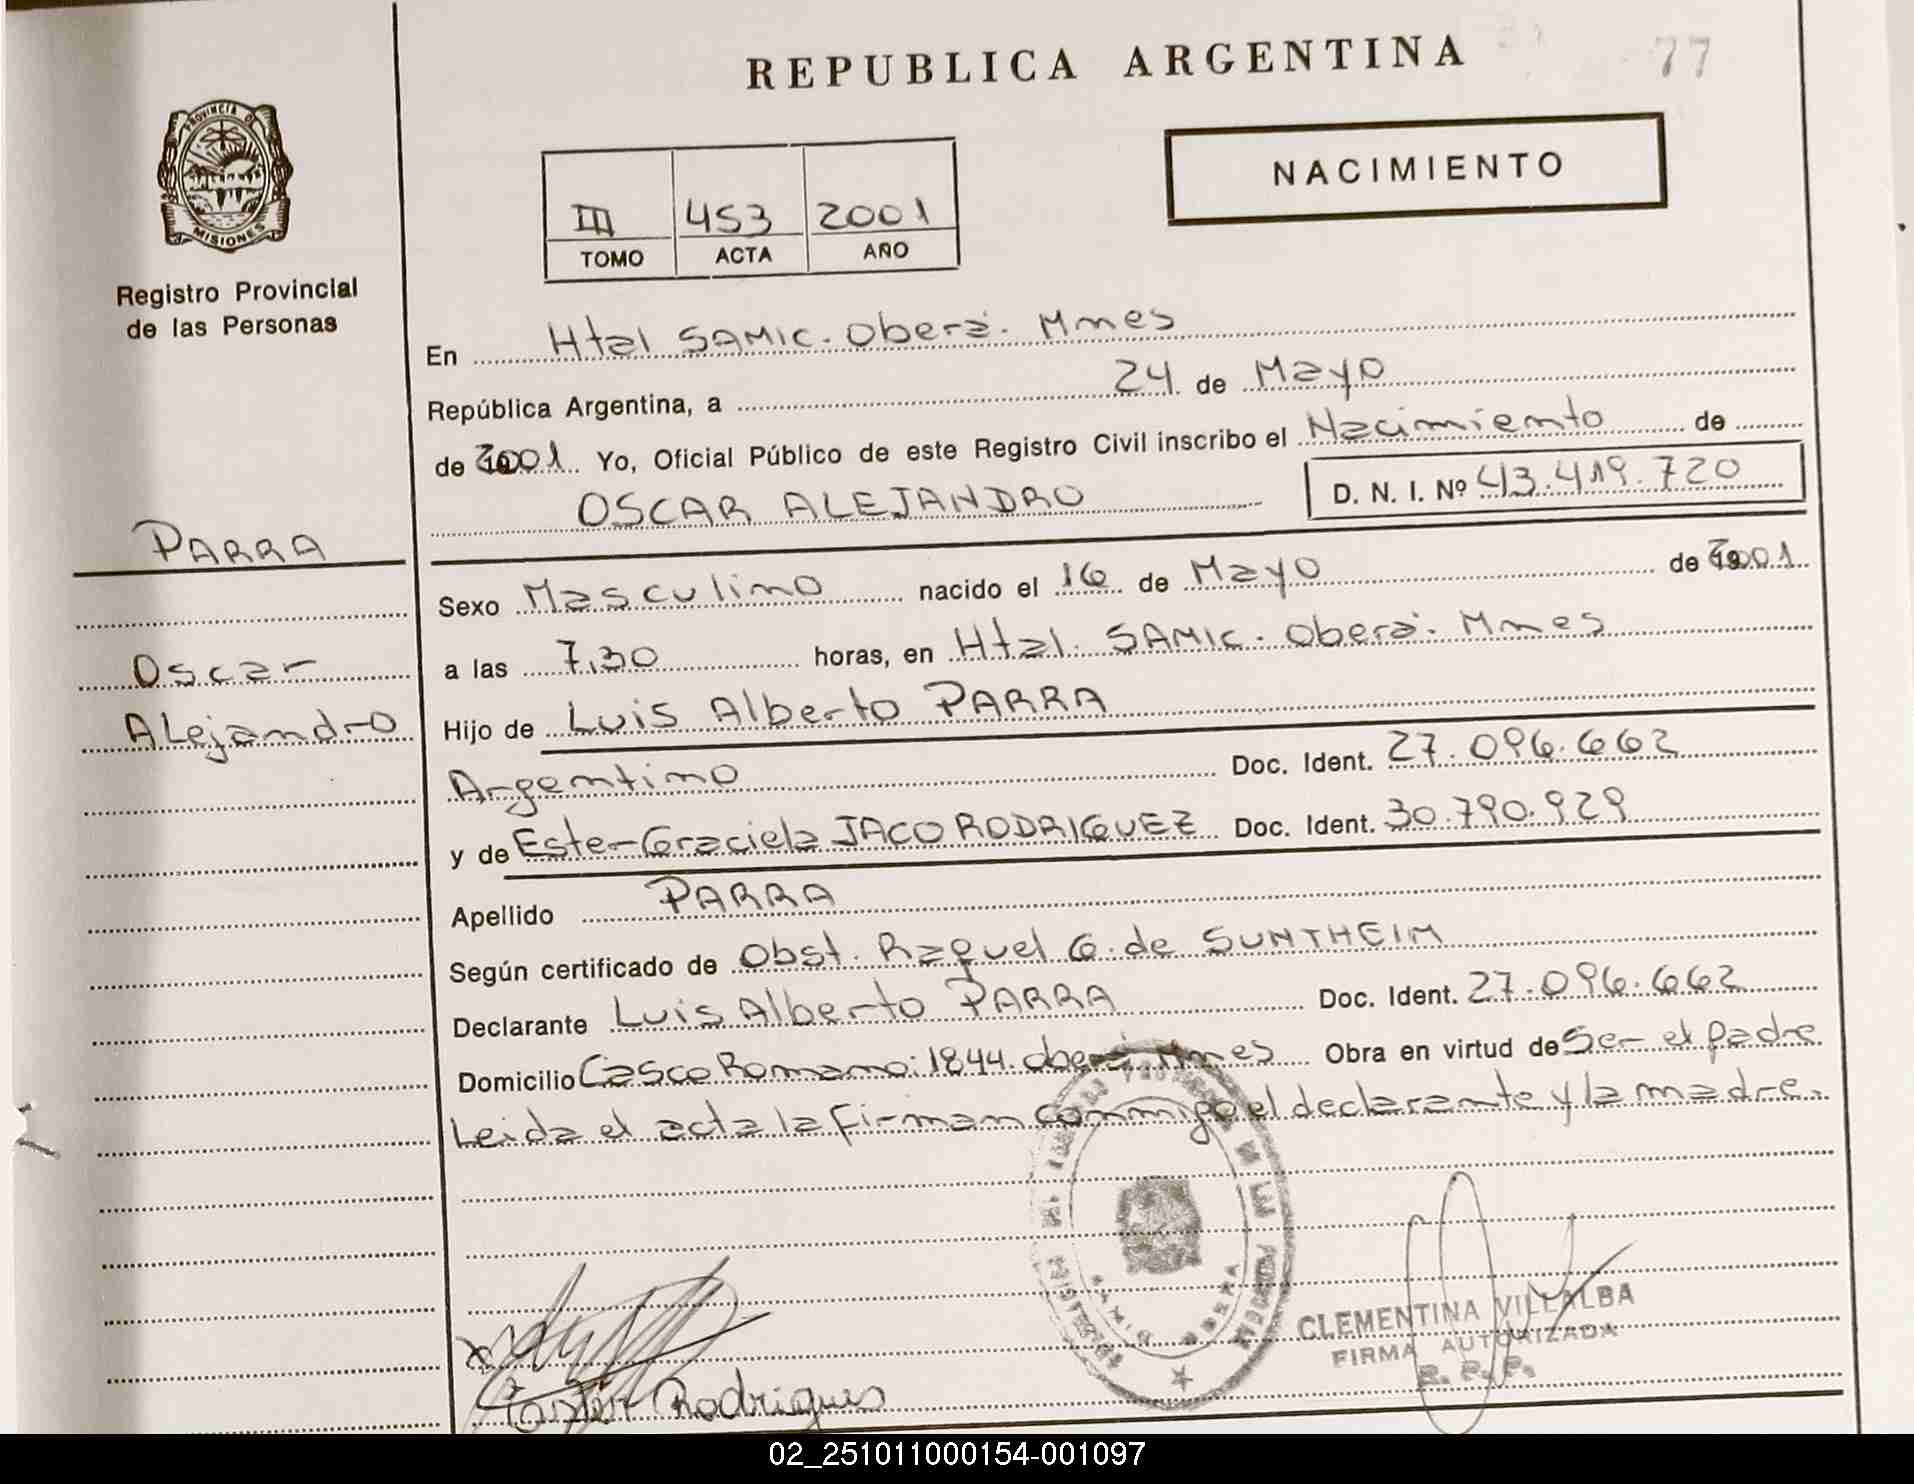 REPUBLICA ARGENTINA
77
PROVINCIA DE
MISIONES
Registro Provincial
de las Personas
III 453 2001
TOMO ACTA AÑO
NACIMIENTO
En Htal SAMIC. Oberá. Mnes
República Argentina, a 24 de Mayo
de 2001 Yo, Oficial Público de este Registro Civil inscribo el Nacimiento de
OSCAR ALEJANDRO D. N. I. Nº 43.419.720
PARRA
Oscar
Alejandro
Sexo Masculino nacido el 16 de Mayo de 2001
a las 7,30 horas, en Htal. SAMIC. Oberá. Mnes
Hijo de Luis Alberto PARRA
Argentino Doc. Ident. 27.096.662
y de Ester Graciela JACO RODRIGUEZ Doc. Ident. 30.790.929
Apellido PARRA
Según certificado de Obst. Raquel G. de SUNTHEIM
Declarante Luis Alberto PARRA Doc. Ident. 27.096.662
Domicilio Casco Romano: 1844. Oberá Mnes Obra en virtud de Ser el padre
Leida el acta la firman conmigo el declarante y la madre.
CLEMENTINA VILLALBA
FIRMA AUTORIZADA
R. P. P.
Rodrigues
02_251011000154-001097